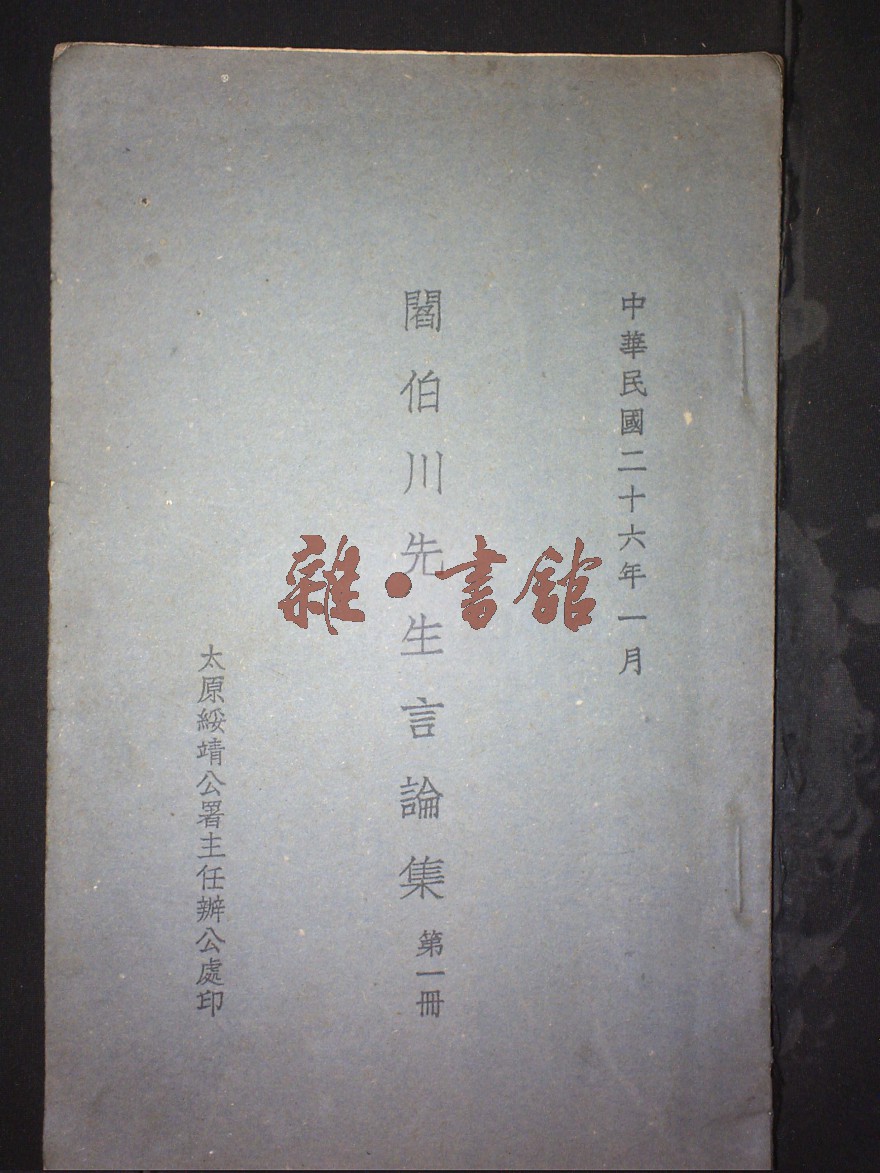 中華民國二十六年一月
閻伯川先生言論集 第一冊
太原綏靖公署主任辦公處印
雜·書館